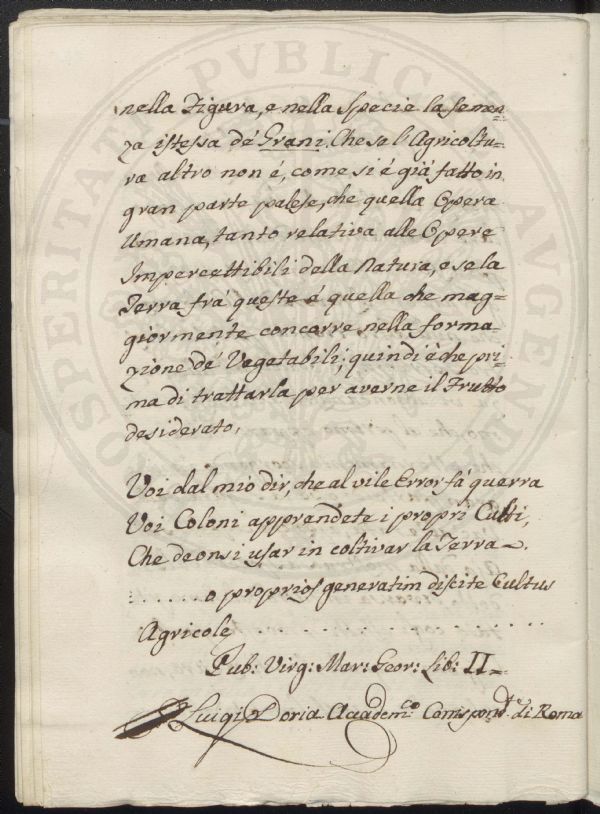 nella Figura, e nella Specie la semen=
za istessa dé Grani. Che se l'Agricoltu=
ra altro non é, come si é già fatto in
gran parte palese, che quella Opera
Umana, tanto relativa alle Opere
Impercettibili della Natura, e se la
Terra frà queste é quella che mag=
giormente concorre nella forma=
zione dé Vegetabili; quindi è che pri=
ma di trattarla per averne il Frutto
desiderato,
Voi dal mio dir, che al vile Error fà guerra
Voi Coloni apprendete i propri Culti,
Che deonsi usar in coltivar la Terra.
. . . . . . o proprios generatim discite Cultus
Agricole . . . . . . . . . . . . . . .
Pub: Virg: Mar: Geor: Lib: II=
Luigi Doria Accadem.co Corrispond.te di Roma
PROSPERITATI PVBLICAE AVGENDAE